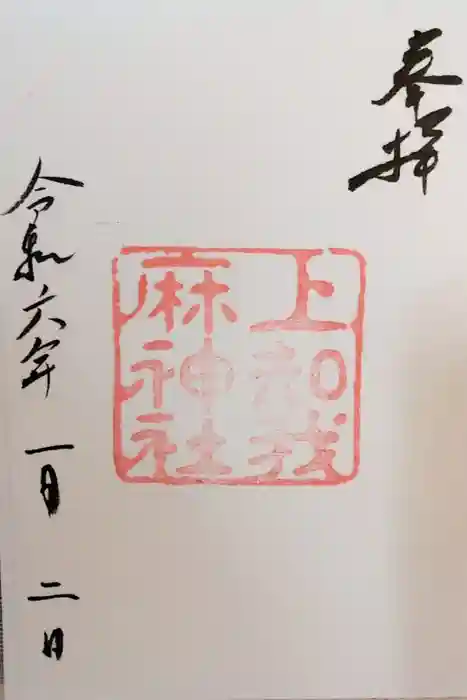 奉拝
上知我
麻神社
令和六年一月二日